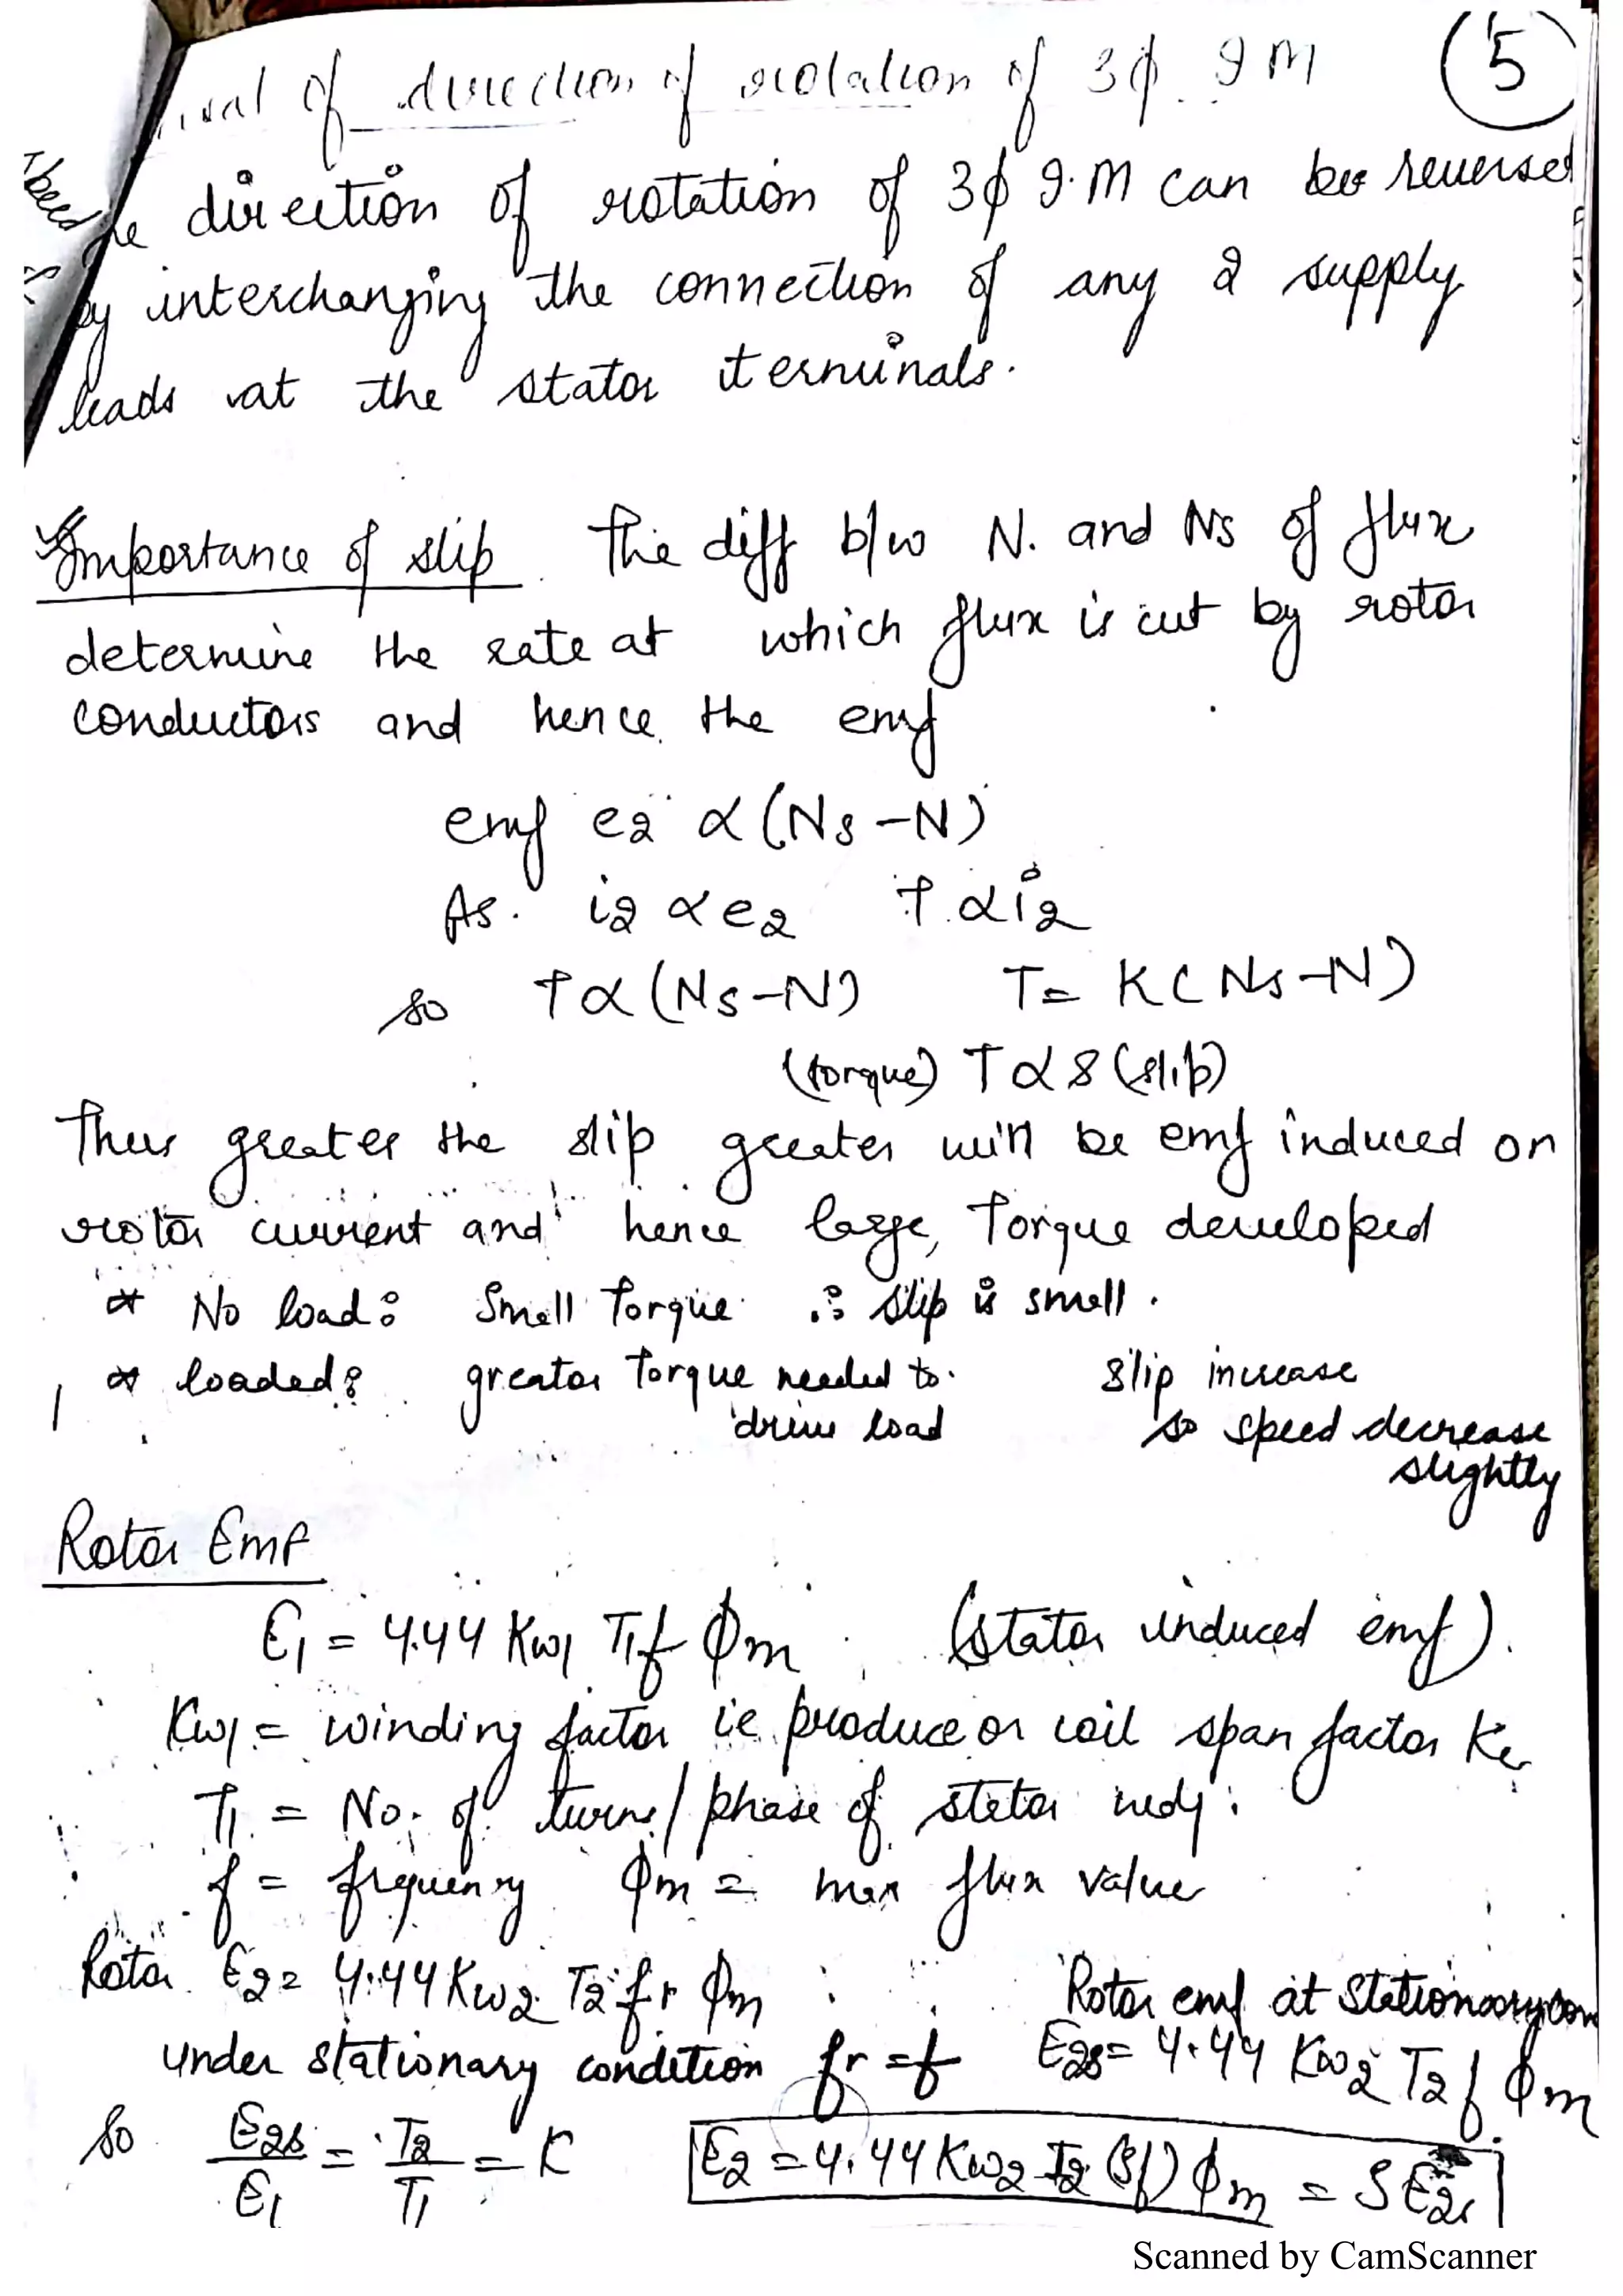 of direction of rotation of 3ϕ I M (5)
direction of rotation of 3ϕ I.M can be reversed
by interchanging the connection of any 2 supply
leads at the stator terminals.
Importance of slip The diff b/w N. and Ns of flux
determine the rate at which flux is cut by rotor
conductors and hence the emf
emf e2 α (Ns-N)
As. i2 α e2 T α i2
so T α (Ns-N) T = K(Ns-N)
(torque) T α s (slip)
Thus greater the slip greater will be emf induced on
rotor current and hence large, Torque developed
* No load: Small Torque ∴ slip is small.
* loaded: greater Torque needed to slip increase
drive load so speed decrease
slightly
Rotor Emf
E1 = 4.44 Kw1 T1 f ϕm (stator induced emf).
Kw1 = winding factor ie produce or coil span factor Kc
T1 = No. of turns/phase of stator
f = frequency ϕm = max flux value
Rotor E2 = 4.44 Kw2 T2 fr ϕm Rotor emf at Stationary con
under stationary condition fr = f E2s = 4.44 Kw2 T2 f ϕm
So E2s/E1 = T2/T1 = K E2 = 4.44 Kw2 T2 (Sf) ϕm = S E2s
Scanned by CamScanner